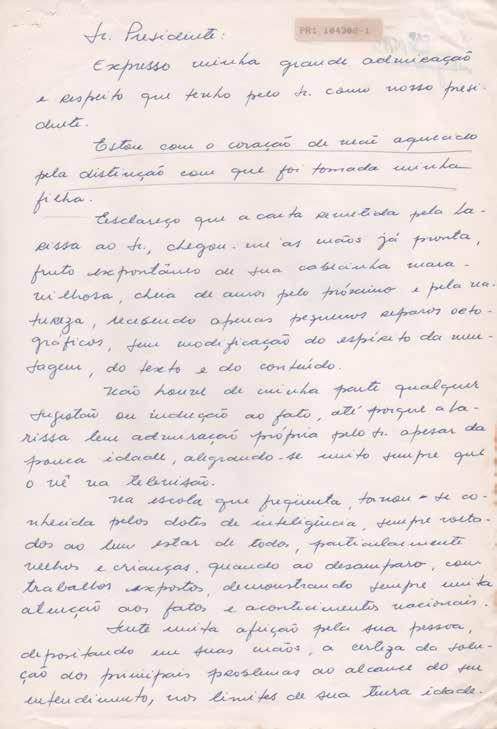 PR1 104300-1
Sr. Presidente:
Expresso minha grande admiração
e respeito que tenho pelo Sr. como nosso presi-
dente.
Estou com o coração de mãe aquecido
pela distinção com que foi tomada minha
filha.
Esclareço que a carta remetida pela La-
rissa ao Sr., chegou-me às mãos já pronta,
fruto expontâneo de sua cabecinha mara-
vilhosa, cheia de amor pelo próximo e pela na-
tureza, recebendo apenas pequenos reparos orto-
gráficos, sem modificação do espírito da men-
sagem, do texto e do conteúdo.
Não houve de minha parte qualquer
sugestão ou indução ao fato, até porque a La-
rissa tem admiração própria pelo Sr. apesar da
pouca idade, alegrando-se muito sempre que
o vê na televisão.
Na escola que freqüenta, tornou-se co-
nhecida pelos dotes de inteligência, sempre volta-
dos ao bem estar de todos, particularmente
velhos e crianças, quando ao desamparo, com
trabalhos expostos, demonstrando sempre muita
atenção aos fatos e acontecimentos nacionais.
Sente muita afeição pela sua pessoa,
depositando em suas mãos, a certeza da solu-
ção dos principais problemas ao alcance do seu
entendimento, nos limites de sua tenra idade.